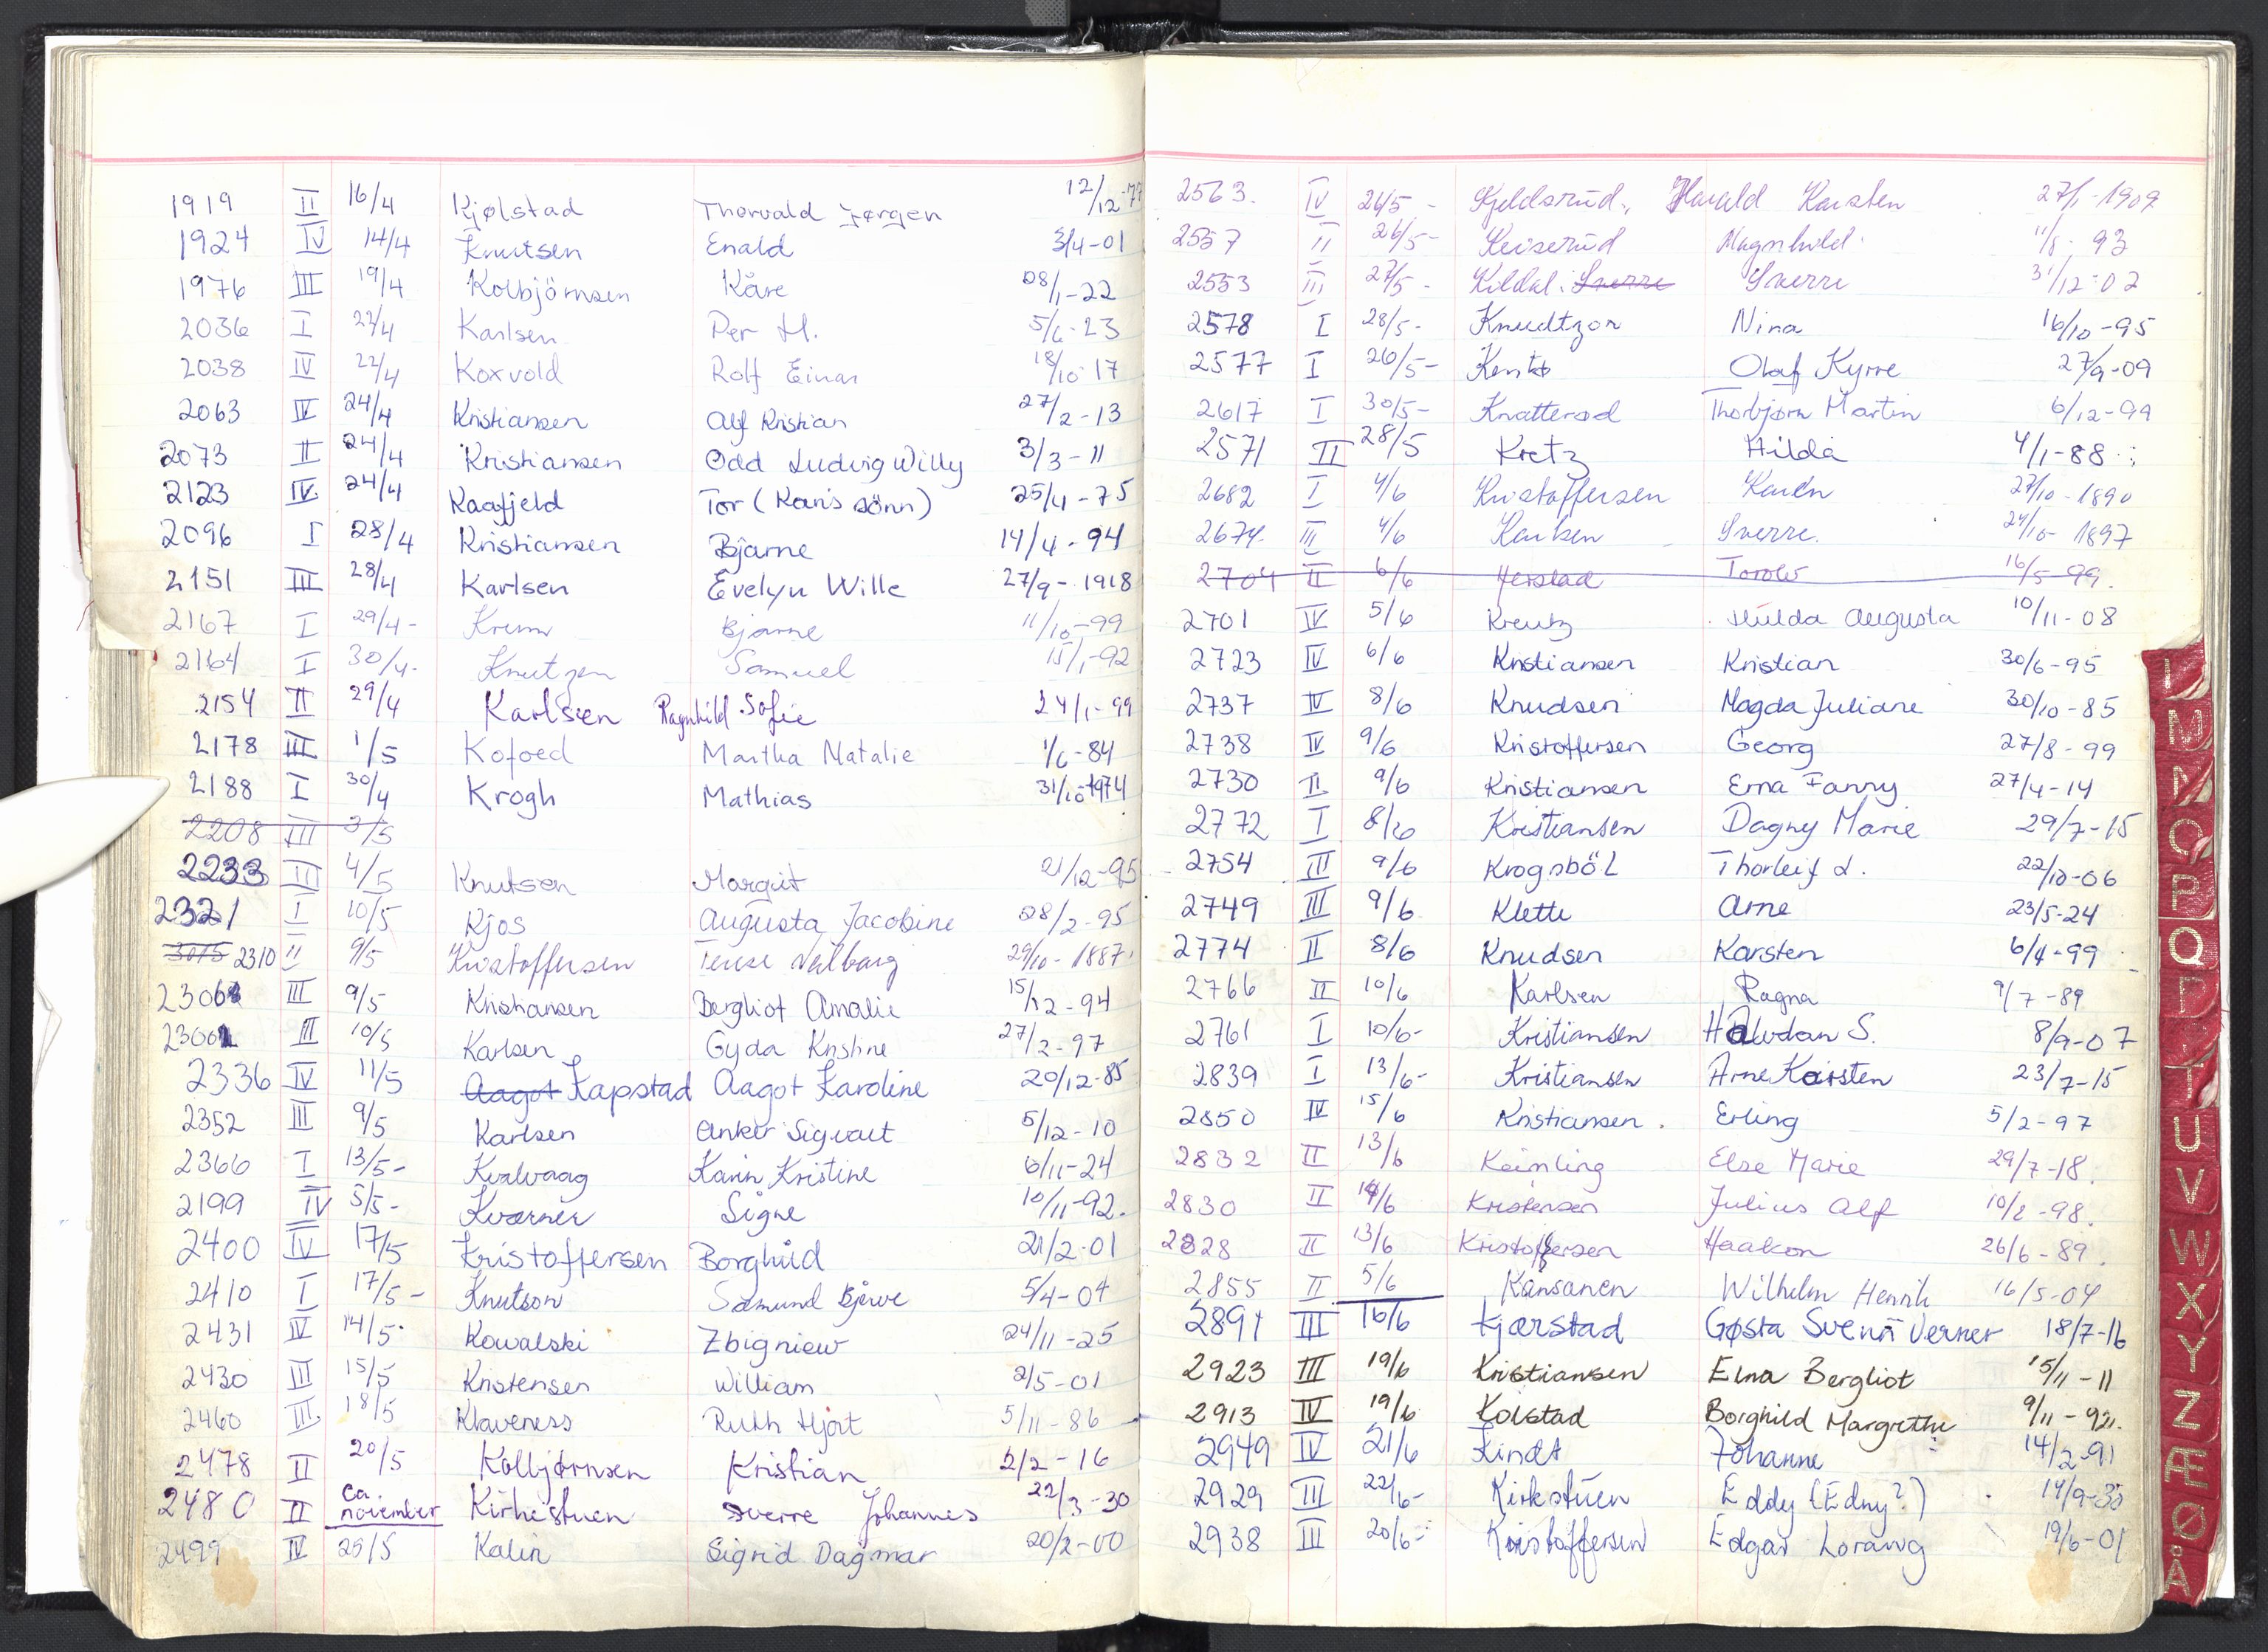 1919 II 16/4 Kjølstad Thorvald Jørgen 12/12-77
1924 IV 14/4 Knutsen Enald 3/4-01
1976 III 19/4 Kolbjörnsen Kåre 28/1-22
2036 I 22/4 Karlsen Per H. 5/6-23
2038 IV 22/4 Koxvold Rolf Einar 18/10-17
2063 IV 24/4 Kristiansen Alf Kristian 27/2-13
2073 II 24/4 Kristiansen Odd Ludvig Willy 3/3-11
2123 IV 24/4 Kaafjeld Tor (Kari's sönn) 25/4-75
2096 I 28/4 Kristiansen Bjarne 14/4-94
2151 III 28/4 Karlsen Evelyn Wille 27/9-1918
2167 I 29/4- Bjarne 11/10-99
2164 I 30/4- Knutzen Samuel 15/1-92
2154 II 29/4 Karlsen Ragnhild Sofie 24/1-99
2178 III 1/5 Kofoed Martha Natalie 1/6-84
2188 I 30/4 Krogh Mathias 31/10-1974
2208 III 3/5
2233 III 4/5 Knutsen Margit 21/12-95
2321 I 10/5 Kjos Augusta Jacobine 28/2-95
3015 2310 II 9/5 Kristoffersen 29/10-1887
III 9/5 Kristiansen Bergliot Amalie 15/12-94
III 10/5 Karlsen Gyda Kristine 27/2-97
2336 IV 11/5 Aagot Kapstad Aagot Karoline 20/12-85
2352 III 9/5 Karlsen Anker Sigvart 5/12-10
2366 I 13/5- Kvalvaag Karin Kristine 6/11-24
2199 IV 5/5- Kværner Signe 10/11-92.
2400 IV 17/5 Kristoffersen Borghild 21/2-01
2410 I 17/5- Knutson Samund Bjerve 5/4-04
2431 IV 14/5 Kowalski Zbigniew 24/11-25
2430 III 15/5 Kristensen William 2/5-01
2460 III 18/5 Klaveness Ruth Hjort 5/11-86
2478 II 20/5 Kolbjørnsen Kristian 2/2-16
2480 II ca. november Kirkestuen Sverre Johannes 22/3-30
2499 IV 25/5 Kalin Sigrid Dagmar 20/2-00
2563. IV 26/5- Kjeldsrud, Harald Karsten 27/1-1909
2557 II 26/5- Keiserud Magnhild 11/8-93
2553 III 27/5- Kildal. Sverre Sverre 31/12-02
2578 I 28/5- Knudtzon Nina 16/10-95
2577 I 26/5- Olaf Kyrre 27/9-09
2617 I 30/5- Knatterød Thorbjørn Martin 6/12-99
2571 II 28/5 Kretz Hilda 4/1-88
2682 I 4/6 Kristoffersen Karen 27/10-1890
2674. III 4/6 Karlsen Sverre. 24/10-1897
2704 II 6/6 Herstad Torolv 16/5-99.
2701 IV 5/6 Kreutz Hulda Augusta 10/11-08
2723 IV 6/6 Kristiansen Kristian 30/6-95
2737 IV 8/6 Knudsen Magda Juliane 30/10-85
2738 IV 9/6 Kristoffersen Georg 27/8-99
2730 II 9/6 Kristiansen Erna Fanny 27/4-14
2772 I 8/6 Kristiansen Dagny Marie 29/7-15
2754 III 9/6 Krogsböl Thorleif L. 22/10-06
2749 III 9/6 Klette Arne 23/5-24
2774 II 8/6 Knudsen Karsten 6/4-99
2766 II 10/6 Karlsen Ragna 9/7-89
2761 I 10/6- Kristiansen Halvdan S. 8/9-07
2839 I 13/6- Kristiansen Arne Karsten 23/7-15
2850 IV 15/6 Kristiansen. Erling 5/2-97
2832 II 13/6 Keimling Else Marie 29/7-18.
2830 II 14/6 Kristensen Julius Alf 10/2-98.
2828 II 13/6 Kristoffersen Haakon 26/6-89.
2855 II 5/6 Kansanen Wilhelm Henrik 16/5-04
2891 III 16/6 Kjærstad Gøsta Svenn Verner 18/7-16
2923 III 19/6 Kristiansen Elna Bergliot 15/11-11
2913 IV 19/6 Kolstad Borghild Margrethe 9/11-92.
2949 IV 21/6 Kindt Johanne 14/2-91
2929 III 22/6- Kirkstuen Eddy (Edny?) 14/9-33
2938 III 20/6- Kristoffersen Edgar Lorang 19/6-01
M
N
O
P
Q
R
T
U
V
W
X
Y
Z
Æ
Ø
Å